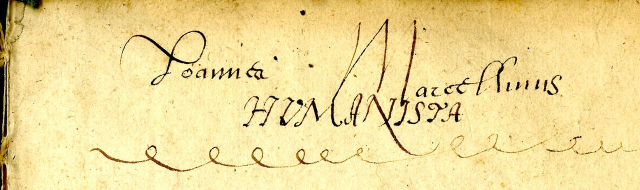 Joannes Marcellinus
HVMANISTA